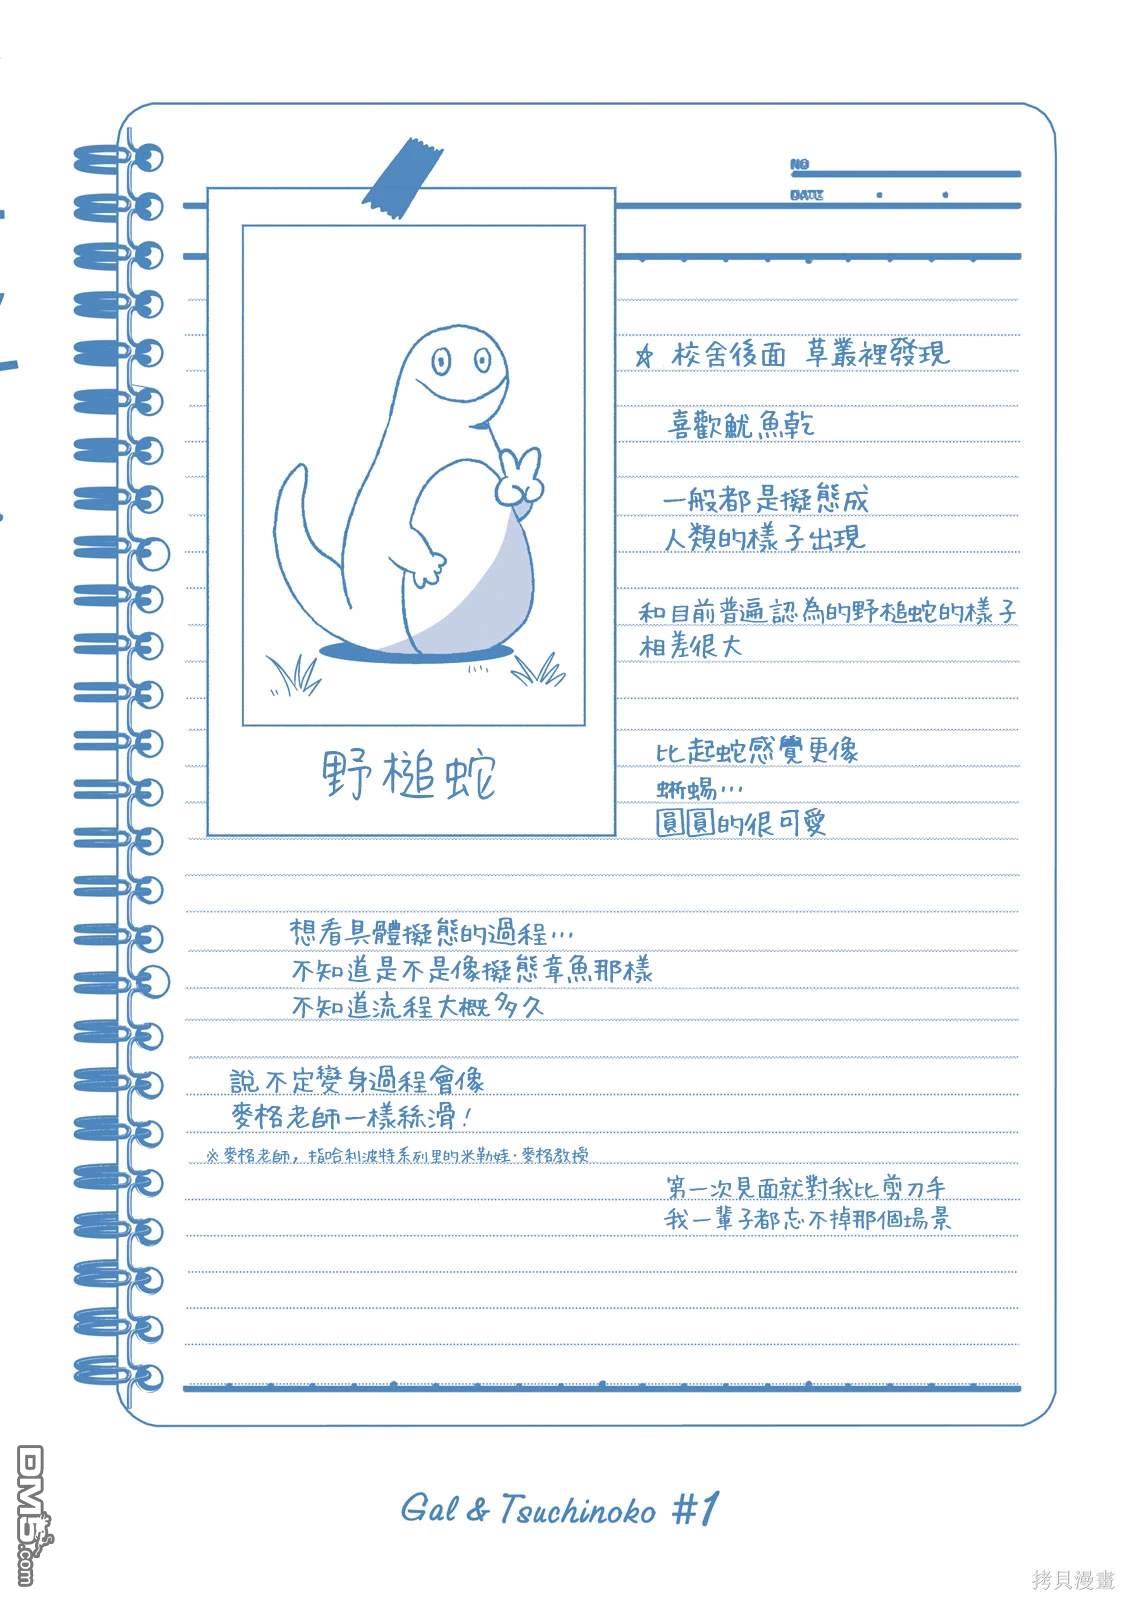 NO
DATE
☆ 校舍後面 草叢裡發現
喜歡魷魚乾
一般都是擬態成
人類的樣子出現
和目前普遍認為的野槌蛇的樣子
相差很大
比起蛇感覺更像
蜥蜴…
圓圓的很可愛
野槌蛇
想看具體擬態的過程…
不知道是不是像擬態章魚那樣
不知道流程大概多久
說不定變身過程會像
麥格老師一樣絲滑!
※麥格老師,指哈利波特系列里的米勒娃·麥格教授
第一次見面就對我比剪刀手
我一輩子都忘不掉那個場景
Gal & Tsuchinoko #1
DM5.com
拷貝漫畫